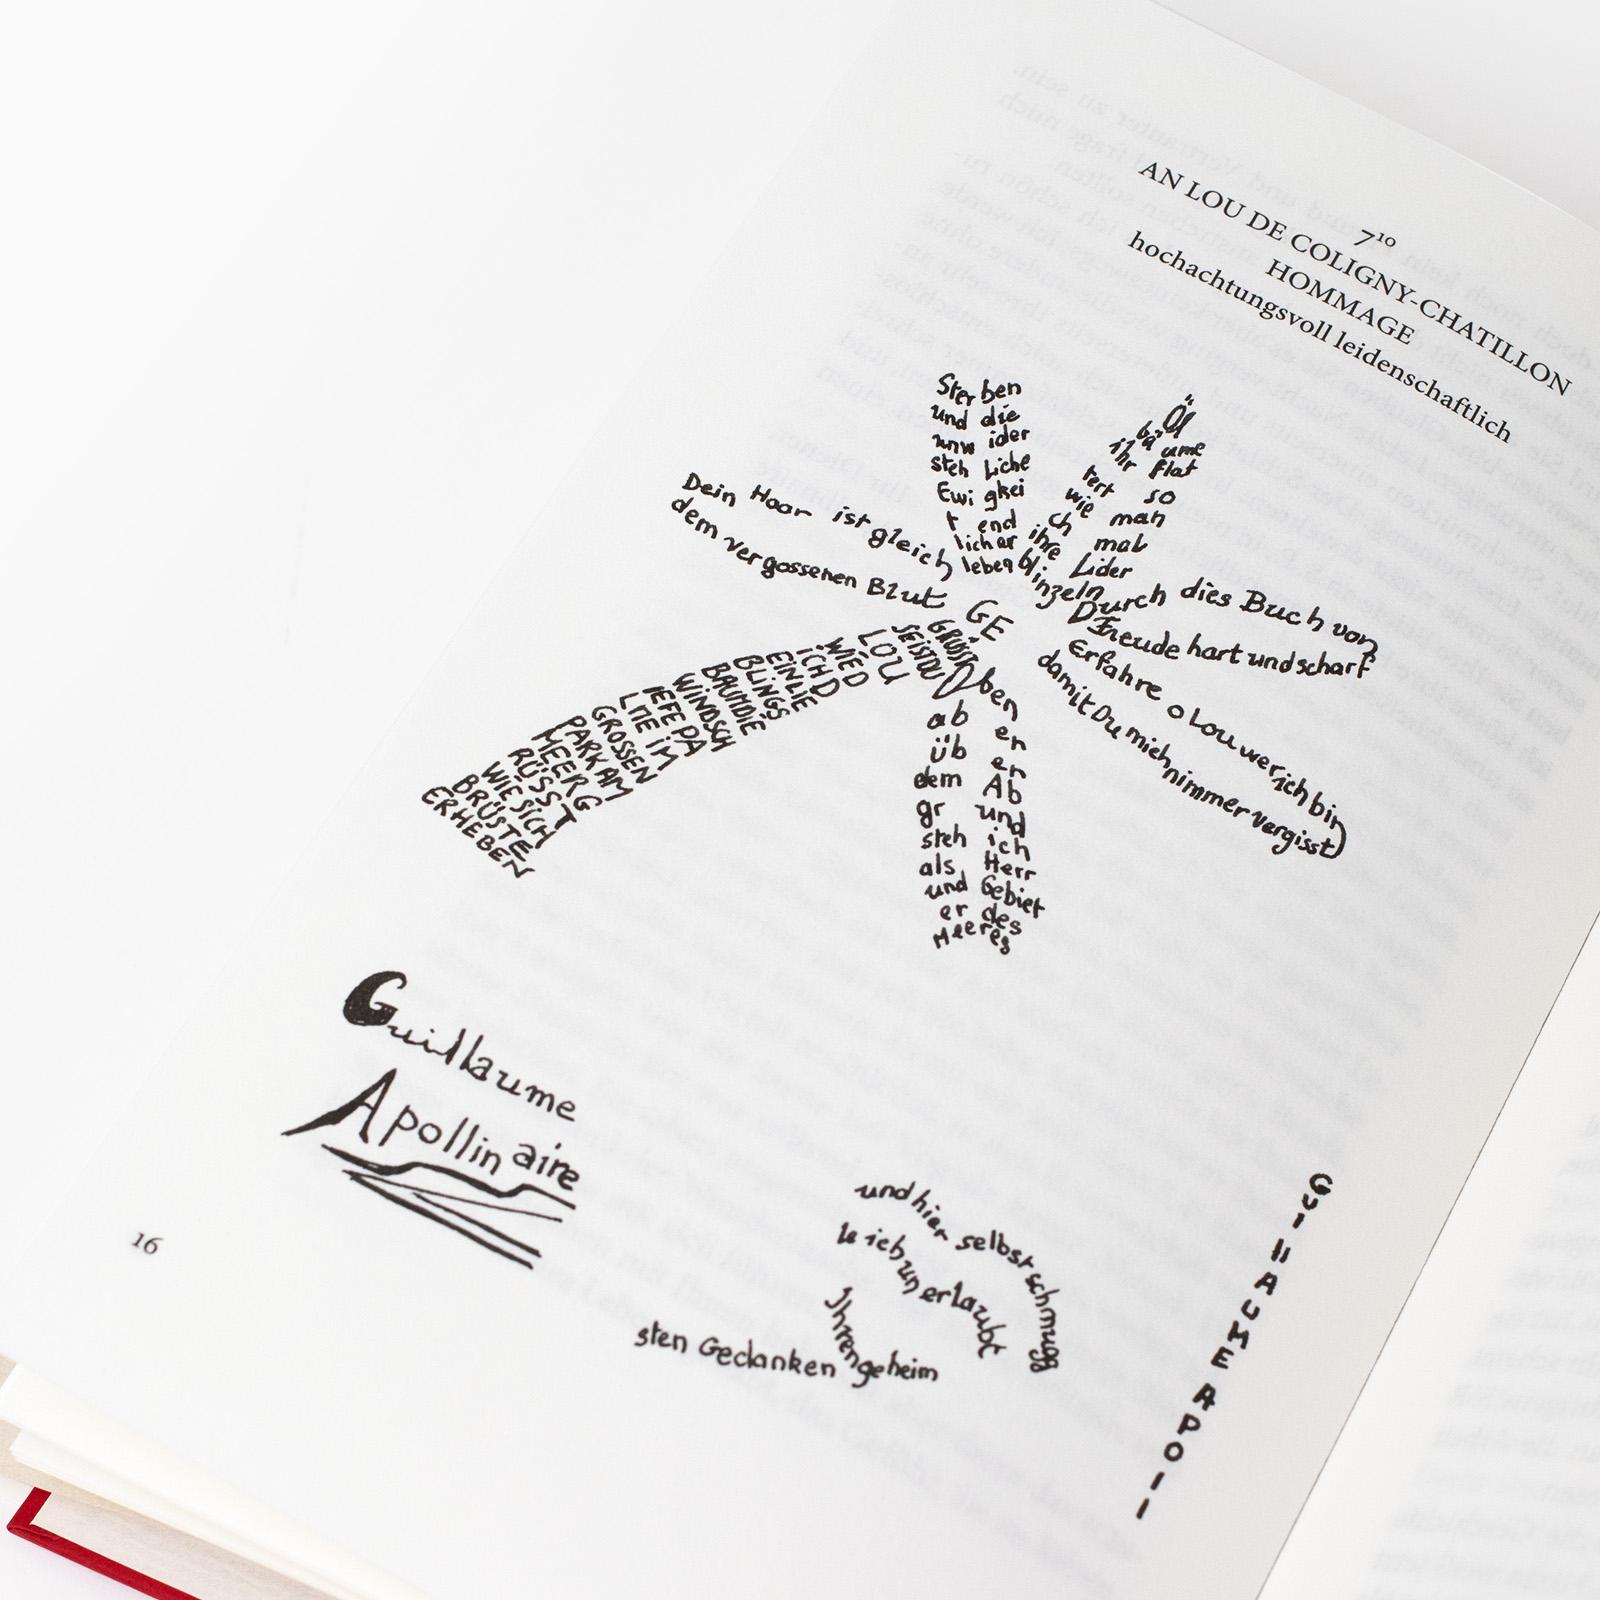 7¹⁰
AN LOU DE COLIGNY-CHATILLON
HOMMAGE
hochachtungsvoll leidenschaftlich
Sterben
und die
unwider
steh liche
Ewi gkei
t end
licher
leben
Öl
bäume
ihr flat
tert so
wie man
ch mal
ihre Lider
blinzeln
Dein Haar ist gleich
dem vergossenen Blut
Durch dies Buch von
Freude hart und scharf
Erfahre o Lou wer ich bin
damit Du mich nimmer vergisst)
GE
GRÜSST
SEISTDU
LOU
WIE D
ICH D
EINLIE
BLINGS
BAUMDIE
WINDSCH
IEFE PA
LME IM
GROSSEN
PARK AM
MEER G
RÜSST
WIESICH
BRÜSTE
ERHEBEN
ben
ab en
üb en
dem Ab
gr und
steh ich
als Herr
und Gebiet
er des
Meeres
Guillaume
Apollinaire
und hier selbst schmugg
le ich unerlaubt
Ihren geheim
sten Gedanken
GUILLAUME APOLL
16